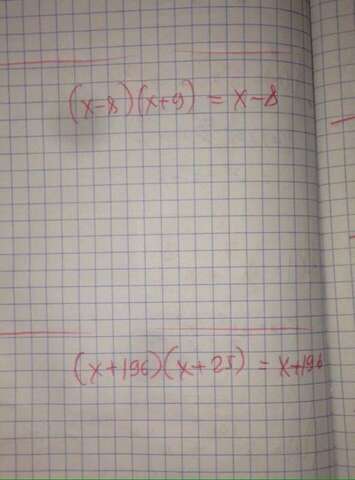 (x-8)(x+9) = x-8
(x+196)(x+25) = x+196